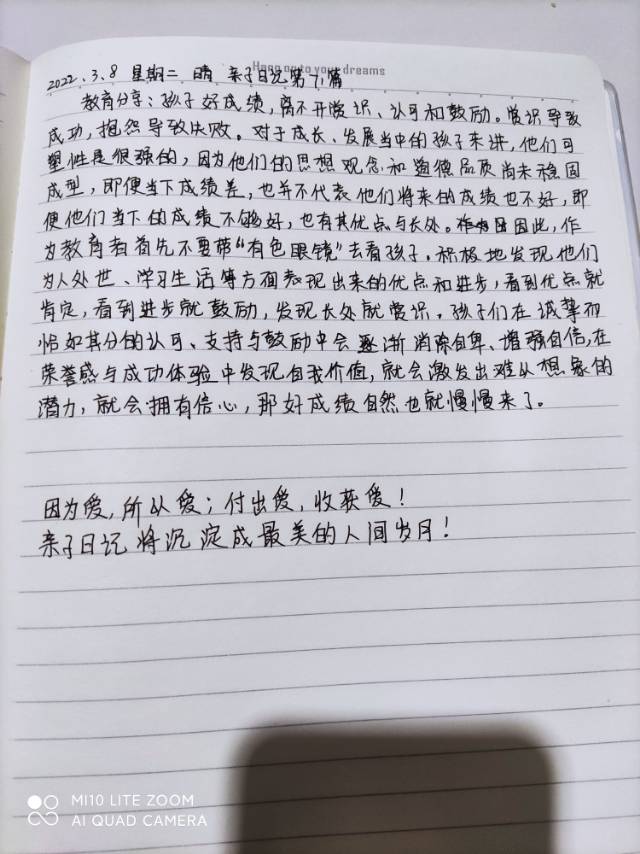 Hang on to your dreams
2022.3.8 星期二 晴 亲子日记第71篇
教育分享:孩子好成绩,离不开赏识、认可和鼓励。赏识导致
成功,抱怨导致失败。对于成长、发展当中的孩子来讲,他们可
塑性是很强的,因为他们的思想观念和道德品质尚未稳固
成型,即便当下成绩差,也并不代表他们将来的成绩也不好,即
便他们当下的成绩不够好,也有其优点与长处。因此,作
为教育者首先不要带“有色眼镜”去看孩子。积极地发现他们
为人处世、学习生活等方面表现出来的优点和进步,看到优点就
肯定,看到进步就鼓励,发现长处就赏识。孩子们在诚挚而
恰如其分的认可、支持与鼓励中会逐渐消除自卑、增强自信,在
荣誉感与成功体验中发现自我价值,就会激发出难以想象的
潜力,就会拥有信心,那好成绩自然也就慢慢来了。
因为爱,所以爱;付出爱,收获爱!
亲子日记将沉淀成最美的人间岁月!
MI10 LITE ZOOM
AI QUAD CAMERA